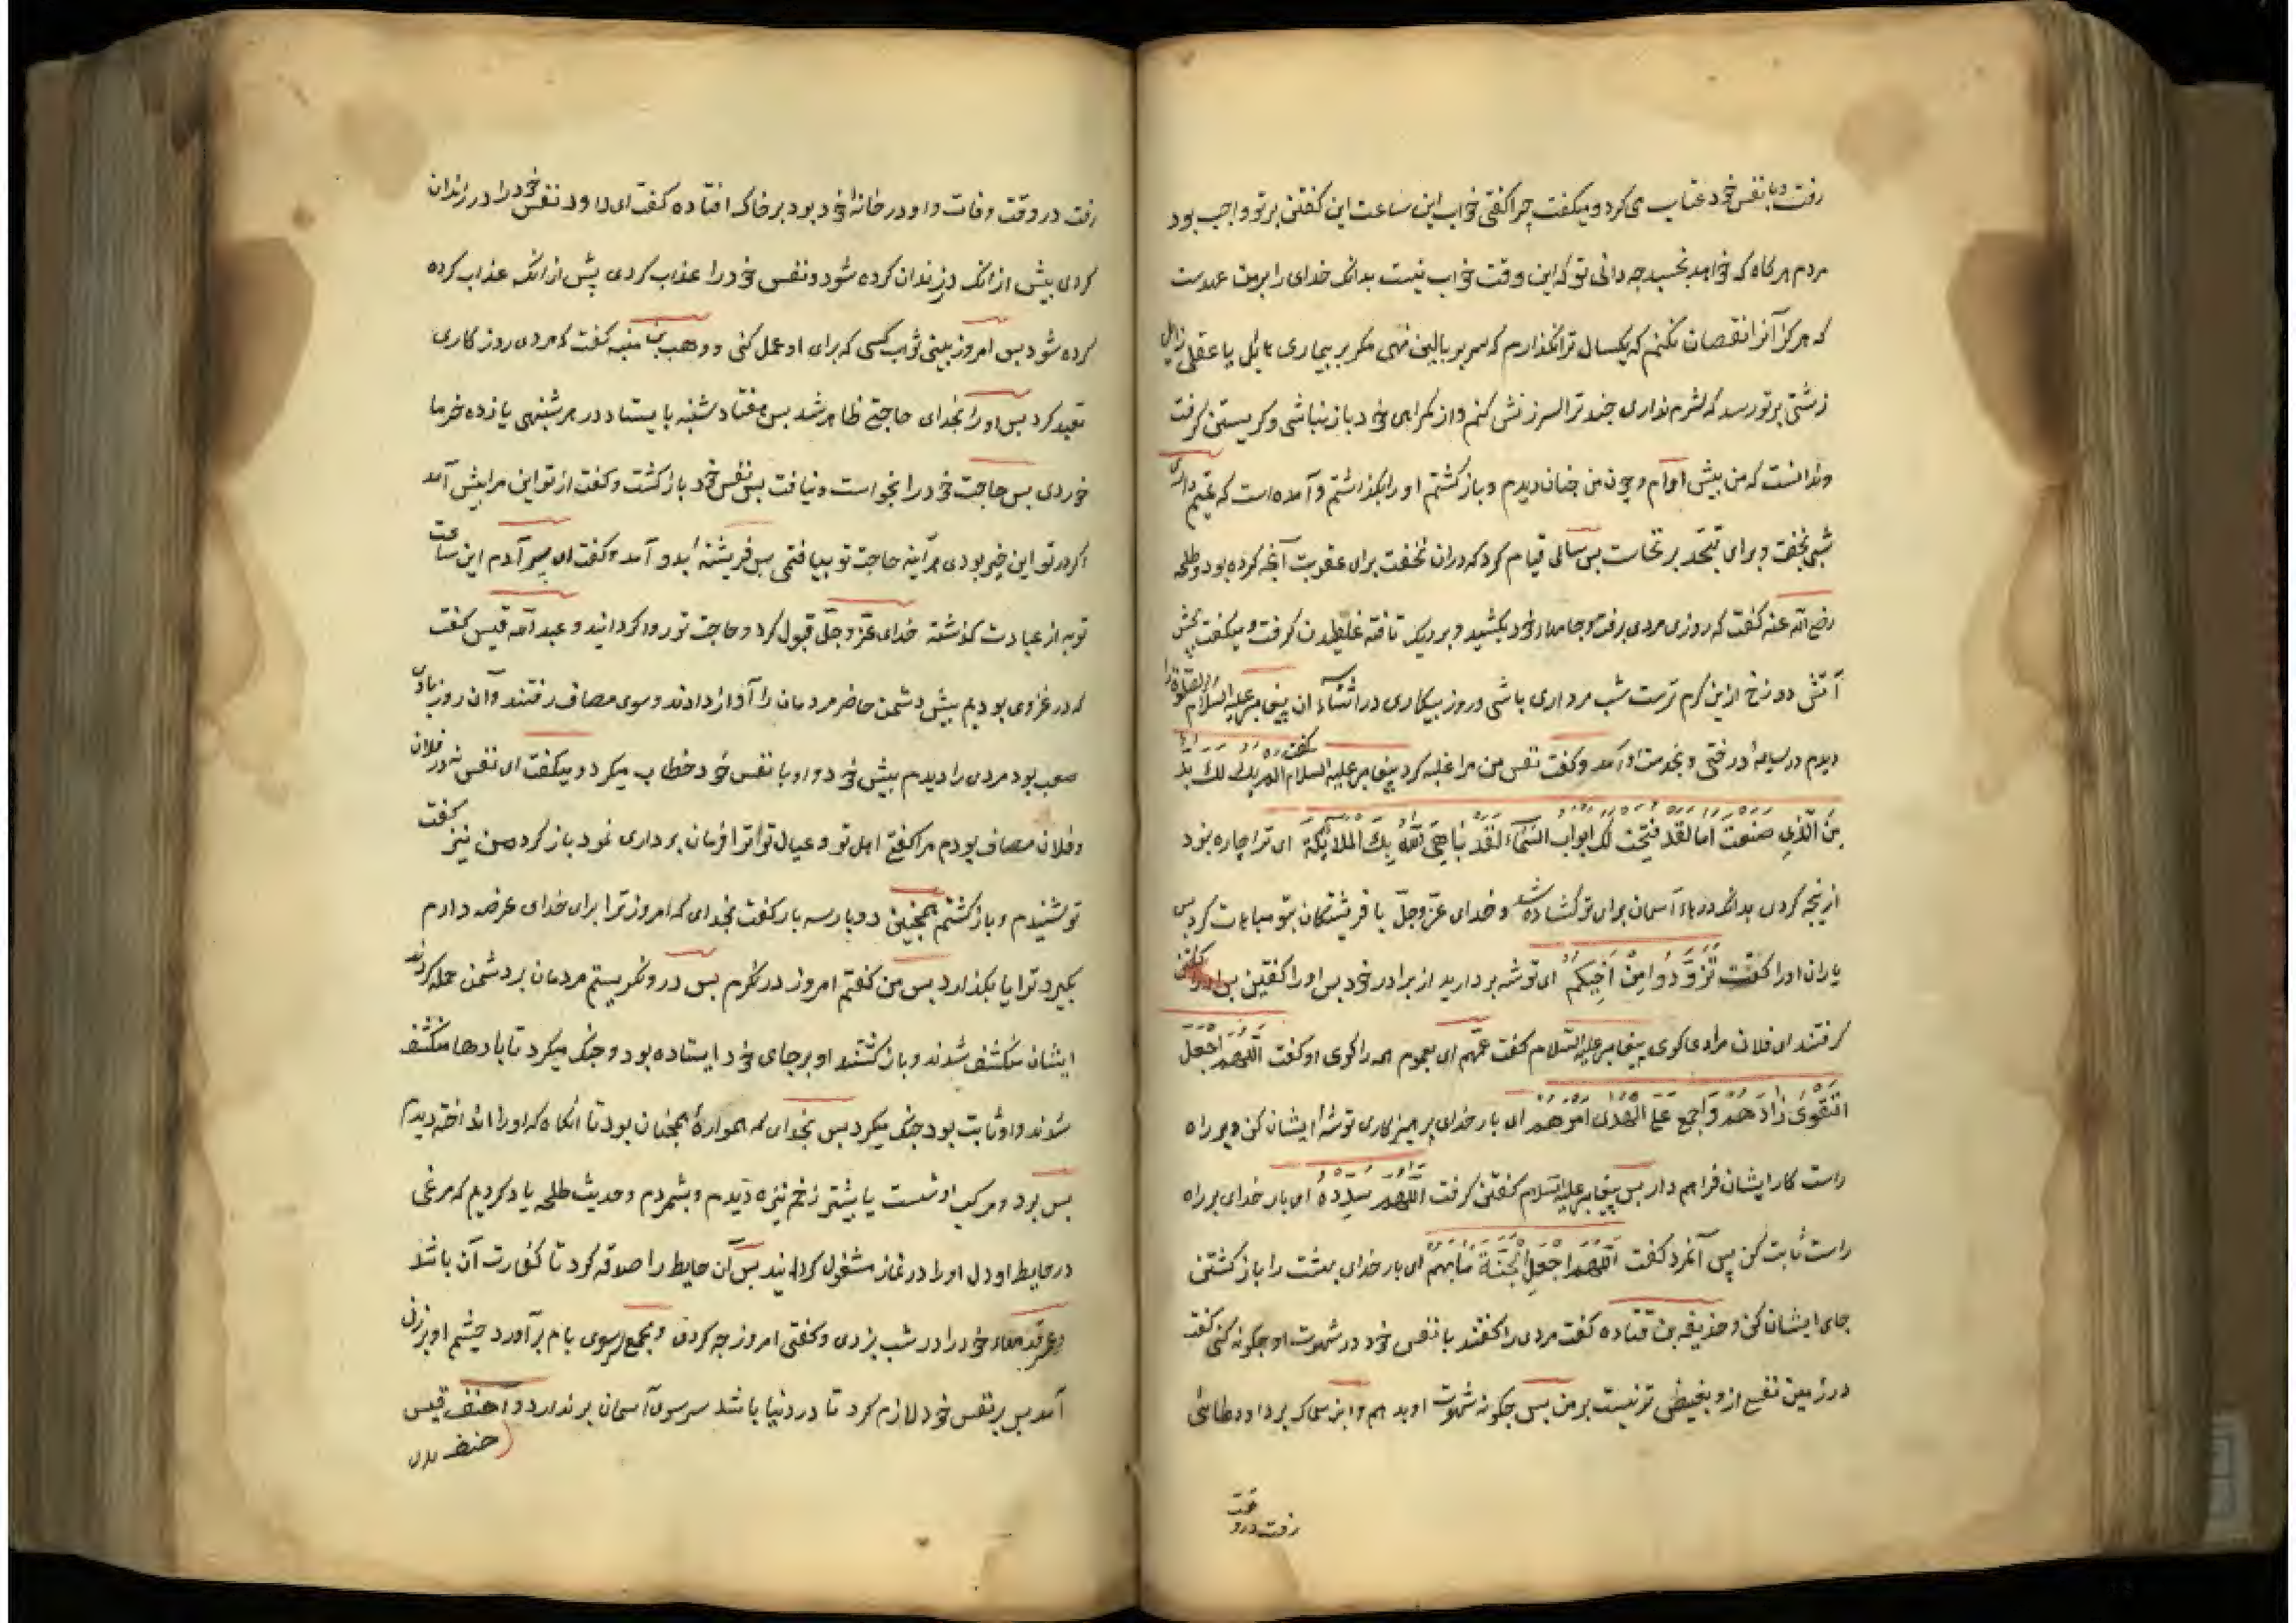 رفت و با نفس خود عتاب می کرد و میکفت چرا کفتی خواب این ساعت این کفتن بر تو واجب بود
مردم هرکاه که خواهد بخسبد چه دانی تو که این وقت خواب نیست بدانک خدای را بر من عهدست
که هرکز آنرا نقصان نکنم که یکسال ترا نکذارم که سر بر بالین نهی مکر بر بیماری حایل یا عقلی زایل
زشتی بر تو رسد که شرم نداری چند ترا سرزنش کنم و از کمراهی خود باز نباشی و کریستن کرفت
و ندانست که من پیش اوام و چون من چنان دیدم و باز کشتم او را بکذاشتم و آمده است که تمیم داری
شبی بخفت و برای تهجد بر نخاست پس سالی قیام کرد که دران نخفت برای عقوبت آنچه کرده بود و طلحه
رضی الله عنه کفت که روزی مردی برفت و جامها خود بکشید و بر ریک تافته غلطیدن کرفت و میکفت بچش
آتش دوزخ ازین کرم ترست شب مرداری باشی و روز بیکاری در اثناء ان پیغامبر علیه السلام
دیدم در سایه درختی و بخدمت او آمد و کفت نفس من مرا غلبه کرد پیغامبر علیه السلام کفت الم یک لک بد
من الذی صنعت اما لقد فتحت لک ابواب السماء لقد باهی الله بک الملائکة ای ترا چاره نبود
ازینچه کردی بدانک درهاء آسمان برای تو کشاده شد و خدای عز وجل با فریشتکان بتو مباهات کرد پس
یاران او را کفت تزودوا من اخیکم ای توشه بردارید از برادر خود پس او را کفتن
کرفتند ای فلان مرا دعا کوی پیغامبر علیه السلام کفت عمهم ای بعموم همه را کوی او کفت اللهم اجعل
التقوی زادهم واجمع علی الهدی امرهم ای بار خدای پرهیزکاری توشهٔ ایشان کن و بر راه
راست کار ایشان فراهم دار پس پیغامبر علیه السلام کفتن کرفت اللهم سدده ای بار خدای بر راه
راست ثابت کن پس آنمرد کفت اللهم اجعل الجنة مابهم ای بار خدای بهشت را باز کشتن
جای ایشان کن و حذیفه بن قتاده کفت مردی را کفتند با نفس خود در شهوت او چکونه کنی کفت
در زمین نفسی ازو بغیض تر نیست بر من پس چکونه شهوت او بدهم و ابن سماک بر داود طائی
رفت در وقت
رفت در وقت وفات و او در خانهٔ خود بود بر خاک افتاده کفت ای داود نفس خود را در زندان
کردی پیش از انک در زندان کرده شود و نفس خود را عذاب کردی پیش از انک عذاب کرده
کرده شود پس امروز بینی ثواب کسی که برای او عمل کنی و وهب بن منبه کفت که مردی روزکاری
تعبد کرد پس او را بخدای حاجتی ظاهر شد پس هفتاد شنبه بایستاد در هر شنبهی یازده خرما
خوردی پس حاجت خود را بخواست و نیافت پس بنفس خود بازکشت و کفت از تو این مرا پیش آمد
اکر در تو این خیر بودی هر آینه حاجت تو بیافتمی پس فریشتهٔ بدو آمد و کفت ای پسر آدم این ساعت
تو به از عبادت کذشته خدای عز وجل قبول کرد و حاجت تو روا کردانید و عبد الله قیس کفت
که در غزوی بودیم پیش دشمن حاضر مردمان را آواز دادند و سوی مصاف رفتند و آن روز بادی
صعب بود مردی را دیدم پیش خود و او با نفس خود خطاب میکرد و میکفت ای نفس نه در فلان
و فلان مصاف بودم مرا کفتی اهل تو و عیال تو ترا فرمان برداری نمود باز کرد من نیز کفت
تو شنیدم و باز کشتم همچنین دو بار سه بار کفت بخدای که امروز ترا برای خدای عرضه دارم
بکیرد ترا یا بکذارد پس من کفتم امروز در نکرم پس درو نکریستم مردمان بر دشمن حمله کردند
ایشان منکشف شدند و باز کشتند او بر جای خود ایستاده بود و جنک میکرد تا بارها منکشف
شدند و او ثابت بود جنک میکرد پس بخدای که همواره همچنان بود تا انکاه که او را انداخته دیدم
پس بود و مرکب او شست یا بیشتر زخم نیزه دیدم و بشمردم و حدیث طلحه یاد کردیم که مرغی
در حایط او دل او را در نماز مشغول کردانید پس آن حایط را صدقه کرد تا کفارت آن باشد
و عمر قدمهاء خود را در شب بزدی و کفتی امروز چه کردی و مجمع سر سوی بام برآورد چشم او بر زن
آمد پس بر نفس خود لازم کرد تا در دنیا باشد سر سوی آسمان بر ندارد و احنف قیس